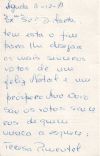 Agueda 11-12-78
Exª Srª D. Marta,
tem esta o fim
para lhe desejar
os mais sinceros
votos de um
feliz Natal e um
próspero Ano Novo
são os votos sinceros
de quem
nunca a esquece,
Teresa Pimentel